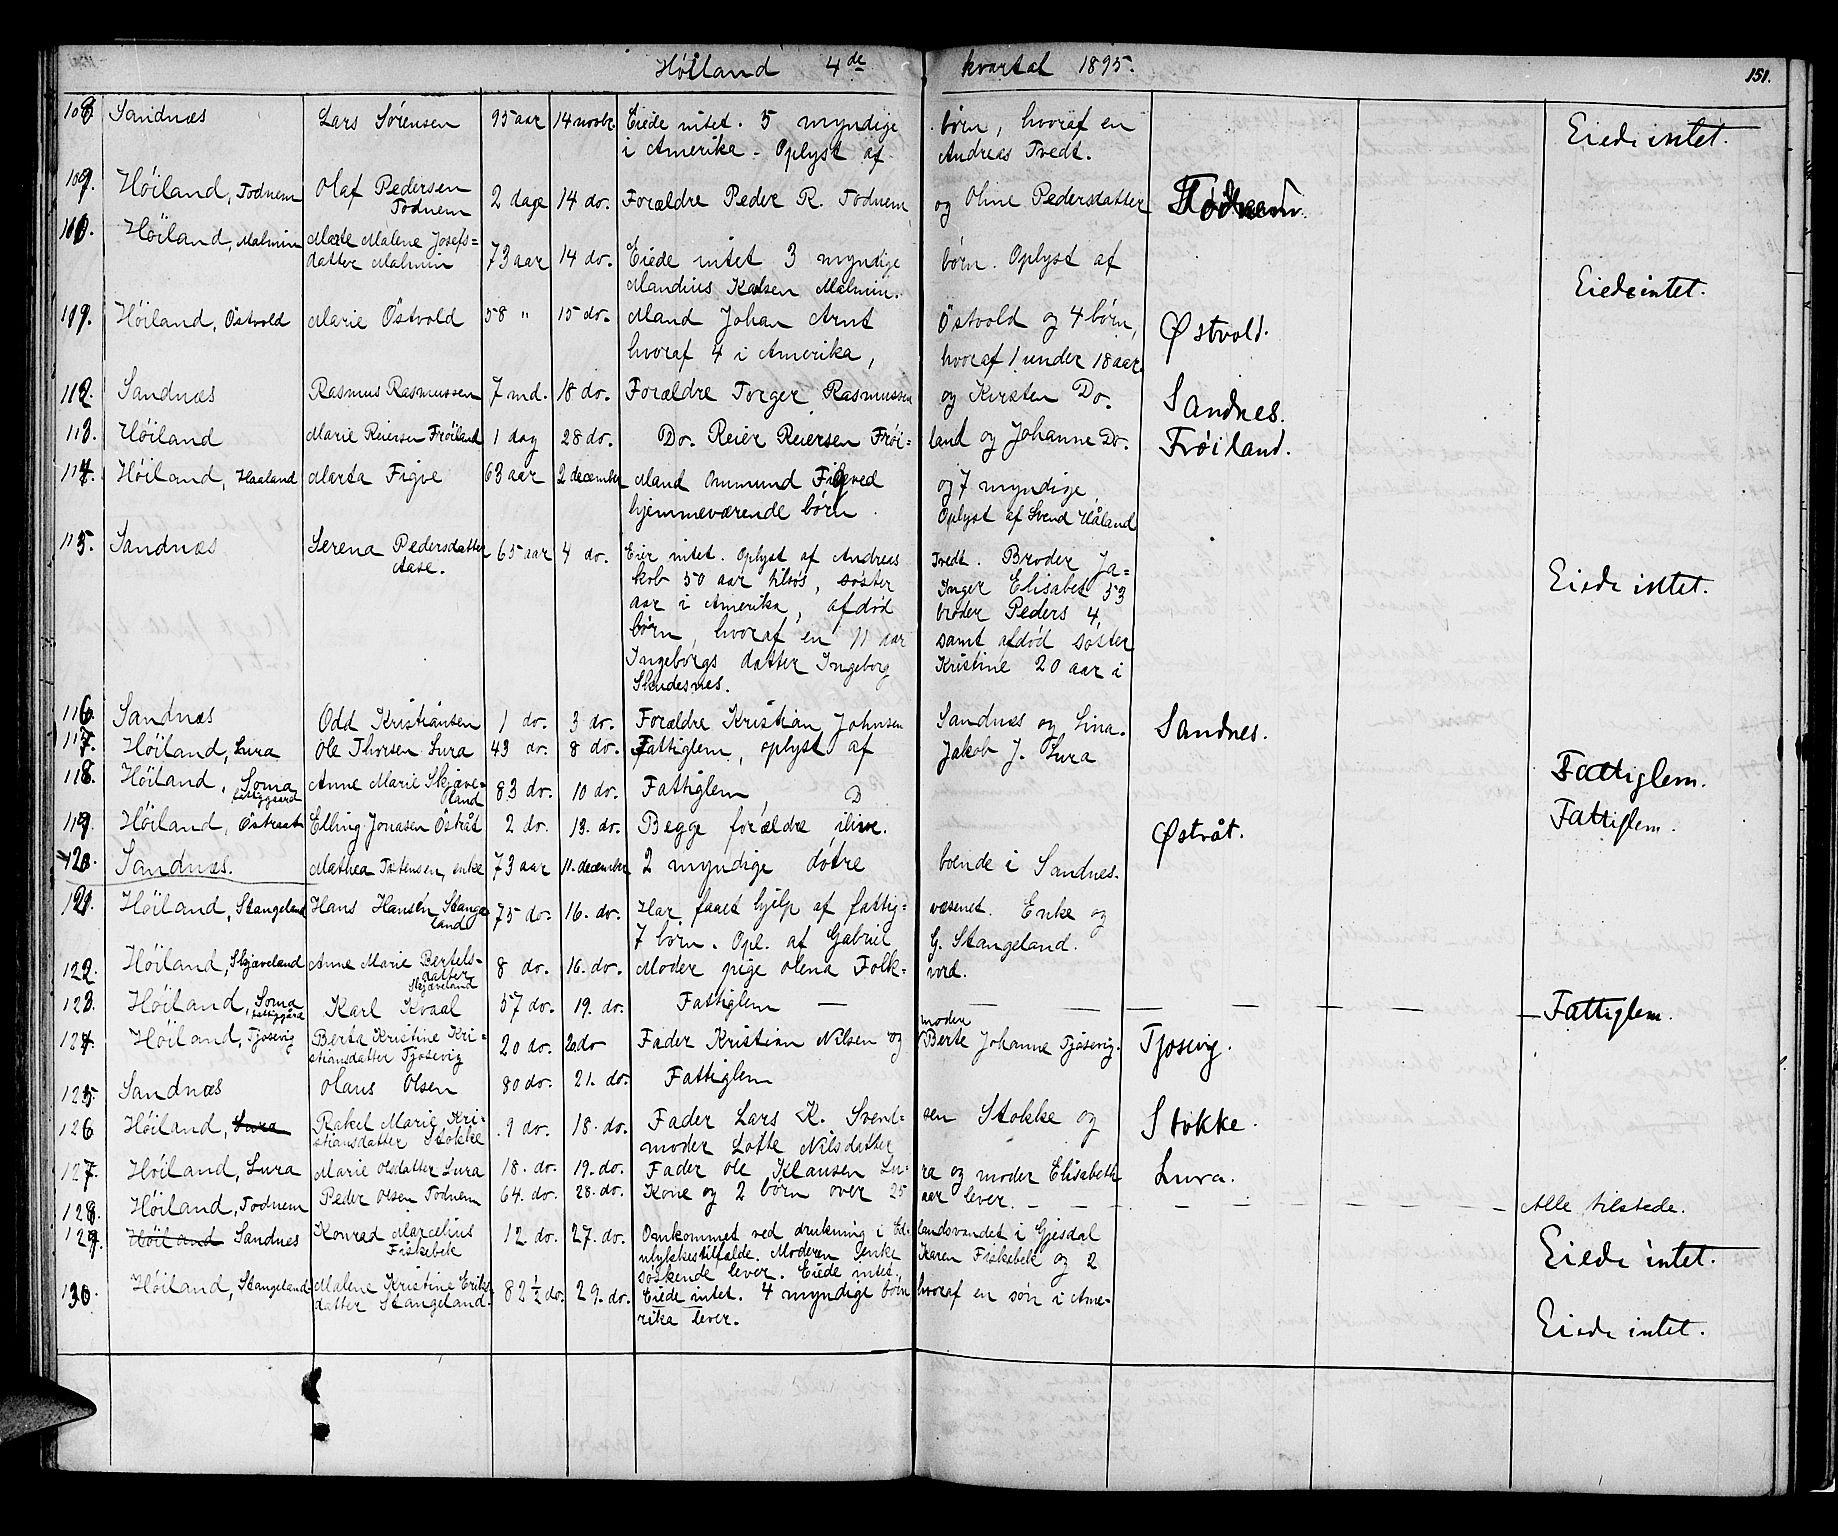 Høiland 4de kvartal 1895. 151.
108. Sandnæs Lars Sørensen 95 aar 14 novbr Eiede intet. 5 myndige børn, hvoraf en Eiede intet.
i Amerika. Oplyst af Andreas Tvedt.
109. Høiland, Todnem Olaf Pedersen
Todnem 2 dage 14 do. Forældre Peder R. Todnem og Oline Pedersdatter Todnem.
110. Høiland, Malmin Marte Malene Josefs-
datter Malmin 73 aar 14 do. Eiede intet 3 myndige børn. Oplyst af
Mandius Malmin. Eiede intet.
Høiland, Østvold Marie Østvold 58 " 15 do. Mand Johan Arnt Østvold og 4 børn, Østvold.
hvoraf 4 i Amerika, hvoraf 1 under 18 aar.
112. Sandnæs Rasmus Rasmussen 7 md. 18 do. Forældre Torger Rasmussen og Kirsten Do. Sandnes.
113. Høiland Marie Reiersen Frøiland 1 dag 28 do. Do. Reier Reiersen Frøi- land og Johanne Do. Frøiland.
114. Høiland, Haaland Marta Figve 63 aar 2 december Mand Ommund og 7 myndige
hjemmeværende børn. Oplyst af Svend Håland
115. Sandnæs Serena Pedersdatter
Aase. 65 aar 4 do. Eier intet. Oplyst af Andreas Tvedt. Broder Ja- Eiede intet.
kob 50 aar tilsøs, søster Inger Elisabet 53
aar i Amerika, afdød broder Peders 4
børn, hvoraf en 11 aar samt afdød søster
Ingeborgs datter Ingeborg Kristine 20 aar i
Skudesnes.
116. Sandnæs Odd Kristiansen 1 do. 3 do. Forældre Kristian Johnsen Sandnæs og Lina. Sandnes.
117. Høiland, Lura Ole Thorsen Lura 43 do. 8 do. Fattiglem, oplyst af Jakob J. Lura Fattiglem.
118. Høiland, Soma
fattiggaard Anne Marie Skjæve-
land 83 do. 10 do. Fattiglem Fattiglem.
119. Høiland, Østraat Elling Jonasen Östråt 2 do. 13. do. Begge forældre ilive. Østråt.
120. Sandnæs. Mathea Tætensen, enke 73 aar 11. december 2 myndige døtre boende i Sandnes.
121. Høiland, Stangeland Hans Hansen Stange-
land 75 do. 16. do. Har faaet hjelp af fattig- væsenet. Enke og
7 børn. Opl. af Gabriel G. Stangeland.
122. Høiland, Skjæveland Anne Marie Bertels-
datter
Skjæveland 8 do. 16. do. Moder pige Olena Folk- vord.
123. Høiland, Soma
fattiggård Karl Kvaal 57 do. 19. do. Fattiglem — — — — — — — Fattiglem.
124. Høiland, Tjosevig Berta Kristine Kri-
stiansdatter Tjosevig 20 do. 20. do Fader Kristian Nilsen og moder
Berte Johanne Tjosevig. Tjosevig.
125 Sandnæs Olaus Olsen 80 do. 21. do. Fattiglem
126 Høiland, Lura Rakel Marie Kri-
stiansdatter Stokke 9 do. 18. do. Fader Lars K. Svend- sen Stokke og Stokke.
moder Lotte Nilsdatter
127. Høiland, Lura Marie Olsdatter Lura 18. do. 19. do. Fader Ole Klausen Lu- ra og moder Elisabeth Lura.
128. Høiland, Todnem Peder Olsen Todnem 64. do. 28. do. Kone og 2 børn over 25 aar lever. — — — — — — Alle tilstede.
129. Høiland Sandnæs Konrad Marcelius
Fiskebek 12 do. 27. do. Omkommet ved drukning i Ed- landsvandet i Gjesdal Eiede intet.
ulykkestilfælde. Moderen enke Karen Fiskebek og 2
søskende lever. Eiede intet.
130. Høiland, Stangeland Malene Kristine Eriks-
datter Stangeland. 82 ½ do. 29. do. Eiede intet. 4 myndige børn hvoraf en søn i Ame-
rika lever. Eiede intet.